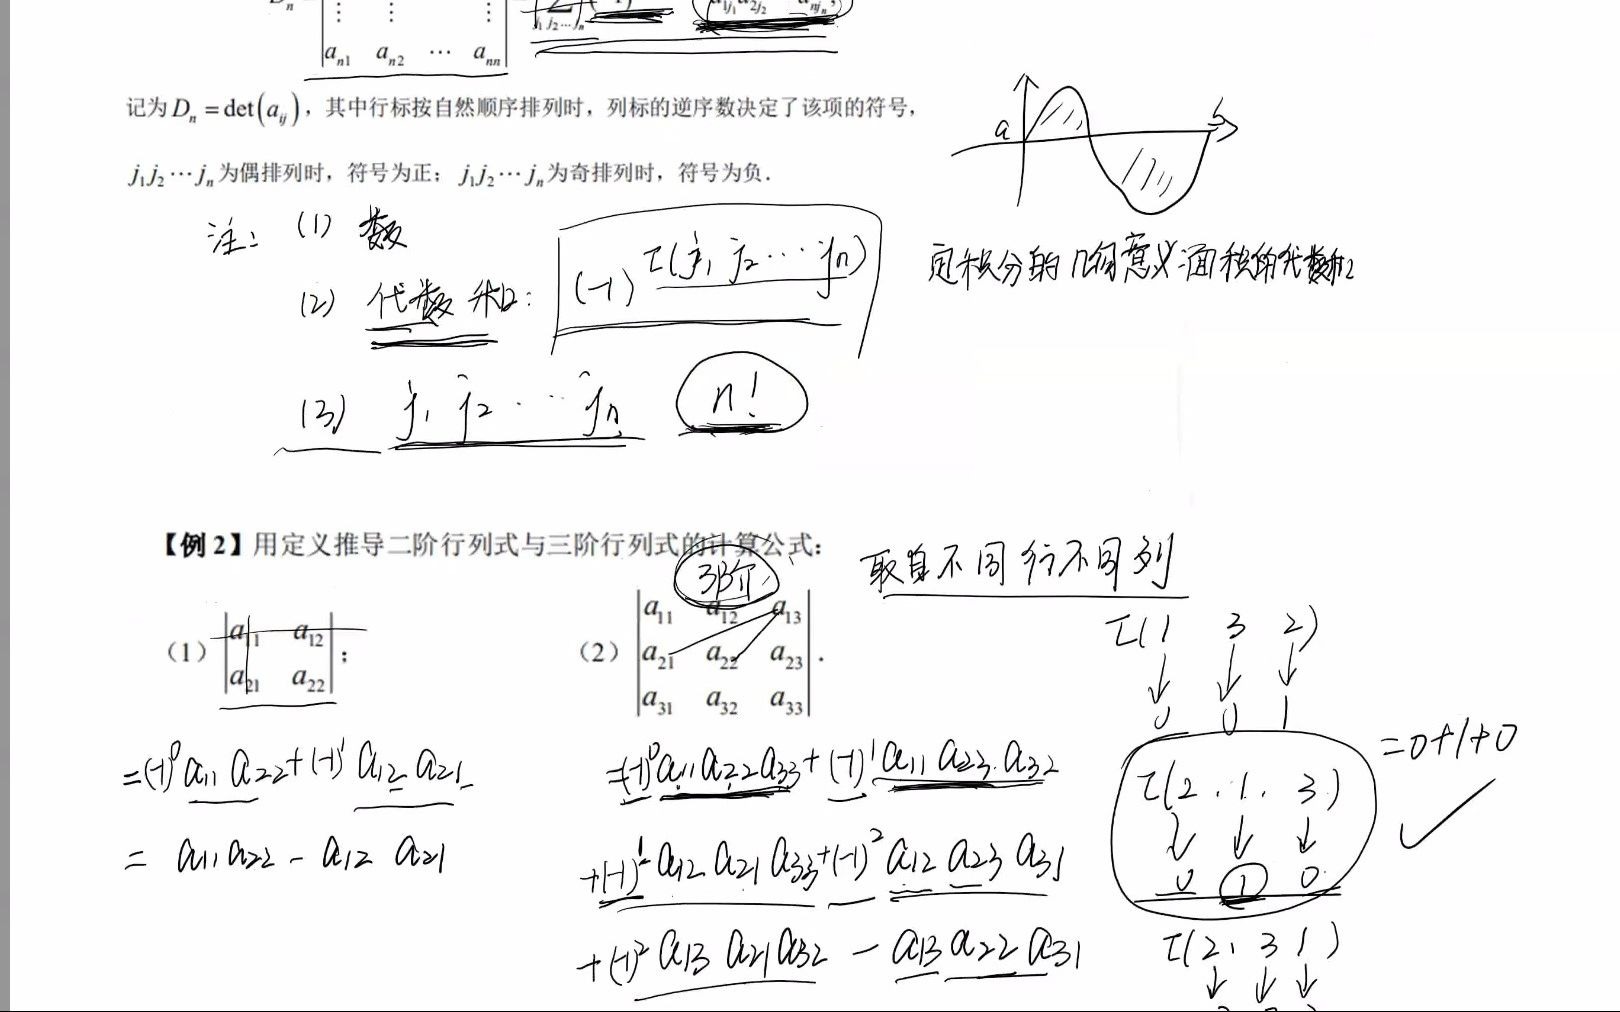 a_{n1} a_{n2} … a_{nn}
记为D_n=det(a_{ij}),其中行标按自然顺序排列时,列标的逆序数决定了该项的符号,
j₁j₂⋯j_n为偶排列时,符号为正;j₁j₂⋯j_n为奇排列时,符号为负.
a
注:(1) 数
(2) 代数和: (-1)^{τ(j₁ j₂ … j_n)}
定积分的几何意义面积的代数和
(3) j₁ j₂ … j_n n!
【例2】用定义推导二阶行列式与三阶行列式的计算公式:
3阶
取自不同行不同列
(1) |a₁₁ a₁₂
a₂₁ a₂₂|;
(2) |a₁₁ a₁₂ a₁₃
a₂₁ a₂₂ a₂₃
a₃₁ a₃₂ a₃₃|.
τ(1 3 2)
0 0 1
=(-1)⁰a₁₁a₂₂+(-1)¹a₁₂a₂₁
= a₁₁a₂₂ - a₁₂ a₂₁
=(-1)⁰a₁₁a₂₂a₃₃+(-1)¹a₁₁a₂₃a₃₂
+(-1)¹a₁₂a₂₁a₃₃+(-1)²a₁₂a₂₃a₃₁
+(-1)²a₁₃a₂₁a₃₂ - a₁₃a₂₂a₃₁
τ(2 . 1 . 3) =0+1+0
0 1 0
τ(2, 3 1)